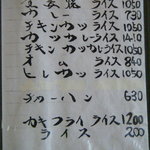 生姜焼ライス 1050
カレーライス 730
チキンカツライス 1050
カツカレーライス 1410
チキンカツカレーライス 1050
オムライス 840
ヒレカツライス 1050
チャーハン 630
カキフライライス 1200
ライス 200